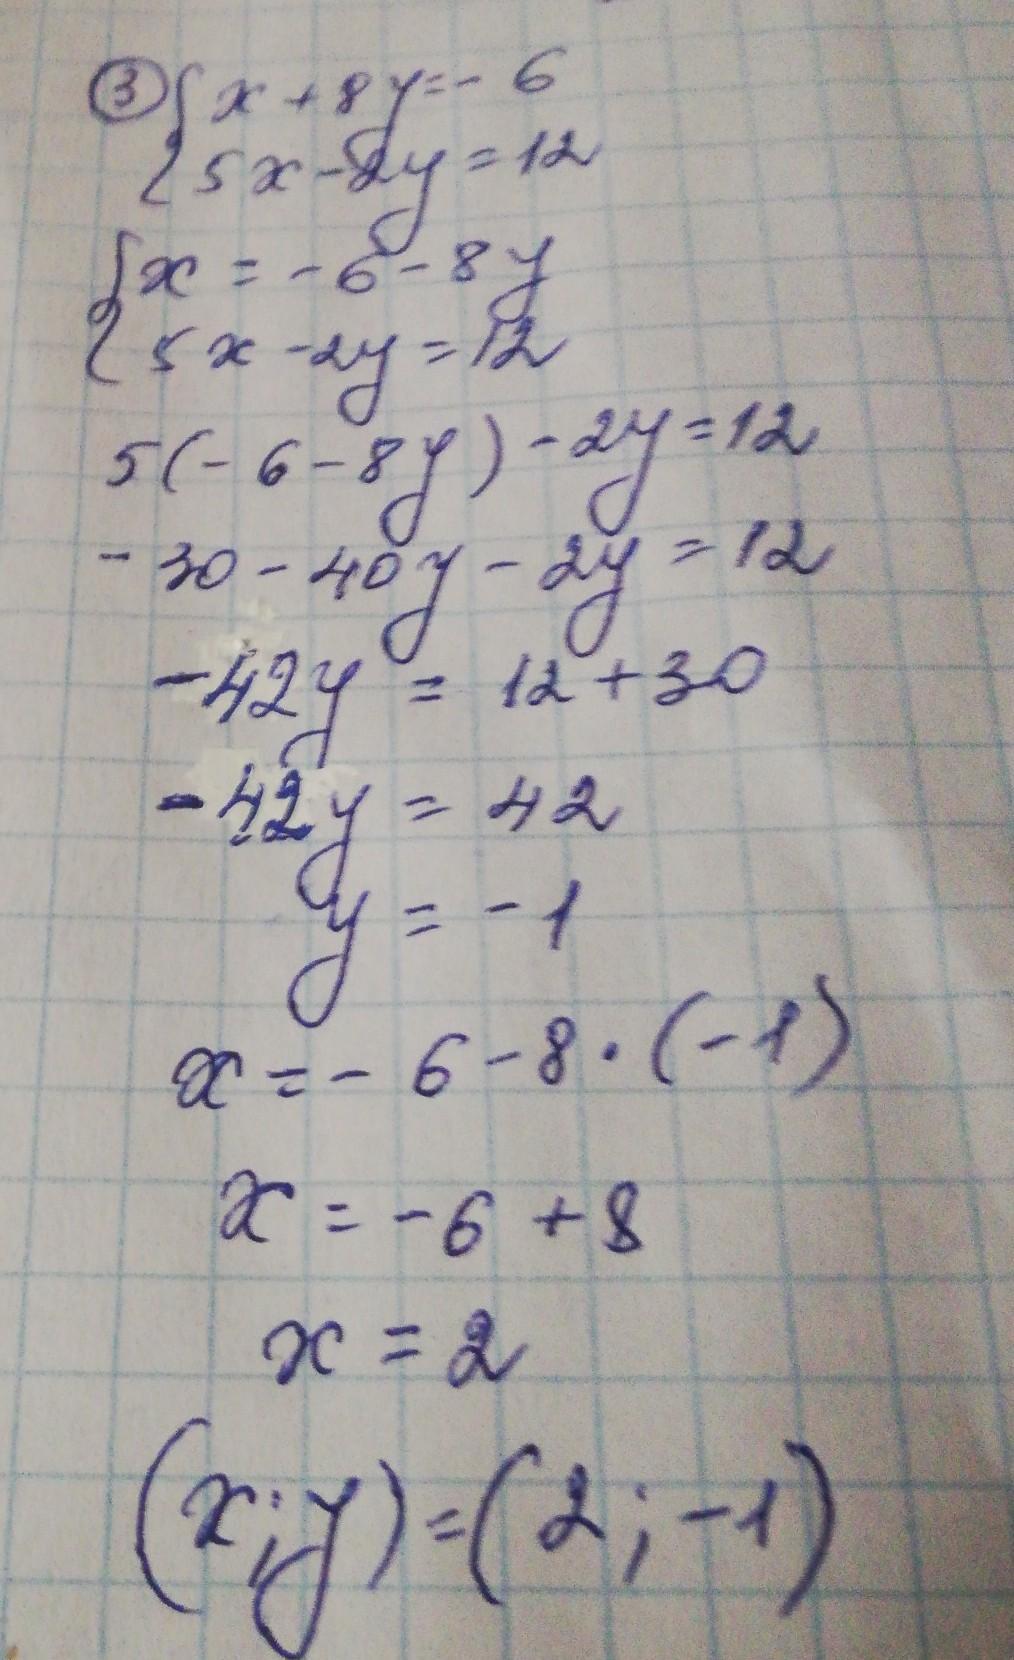 ③ { x + 8y = - 6
{ 5x - 2y = 12
{ x = - 6 - 8y
{ 5x - 2y = 12
5(- 6 - 8y) - 2y = 12
- 30 - 40y - 2y = 12
- 42y = 12 + 30
- 42y = 42
y = - 1
x = - 6 - 8 · (- 1)
x = - 6 + 8
x = 2
(x; y) = (2; -1)